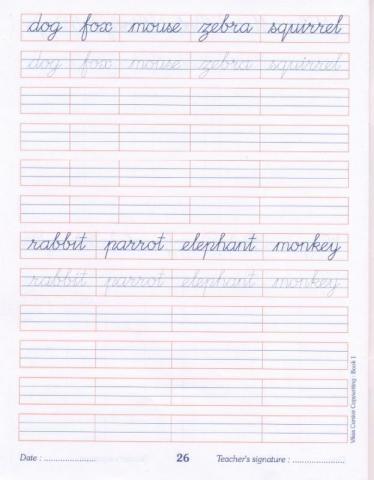 dog fox mouse zebra squirrel
dog fox mouse zebra squirrel
rabbit parrot elephant monkey
rabbit parrot elephant monkey
Vikas Cursive Copywriting - Book 1
Date : ...................... 26 Teacher's signature : ......................